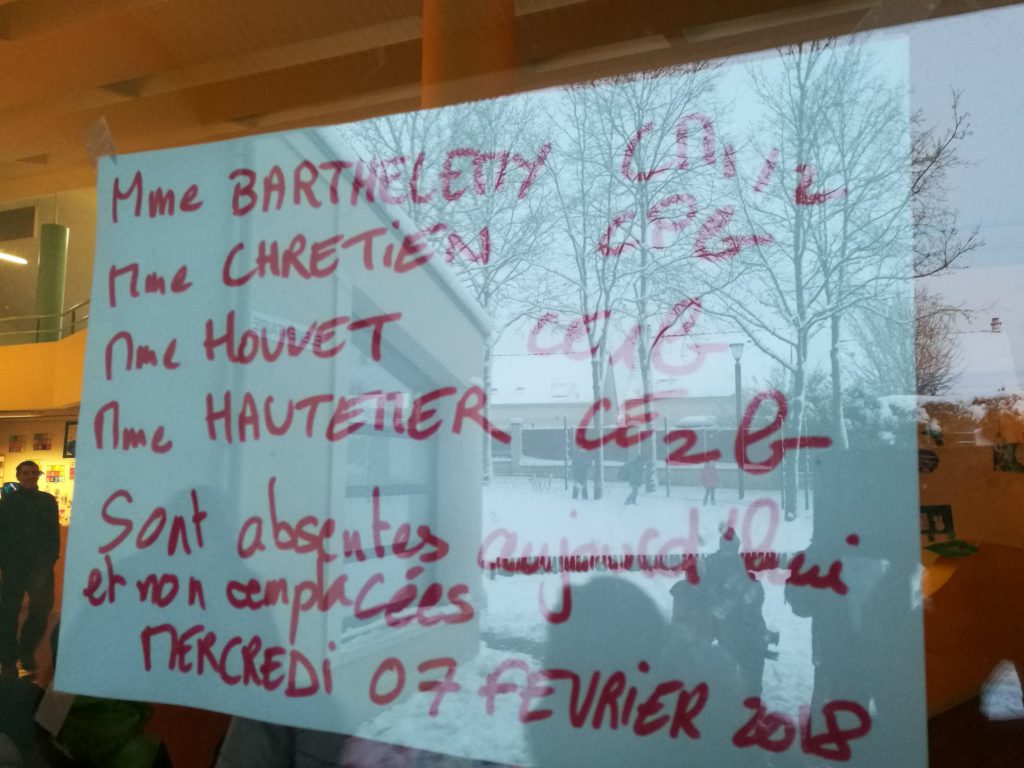 Mme BARTHELEMY CM1/2
Mme CHRETIEN CPB
Mme HOUVET CE1B
Mme HAUTETIER CE2B
Sont absentes aujourd'hui
et non remplacées
MERCREDI 07 FEVRIER 2018